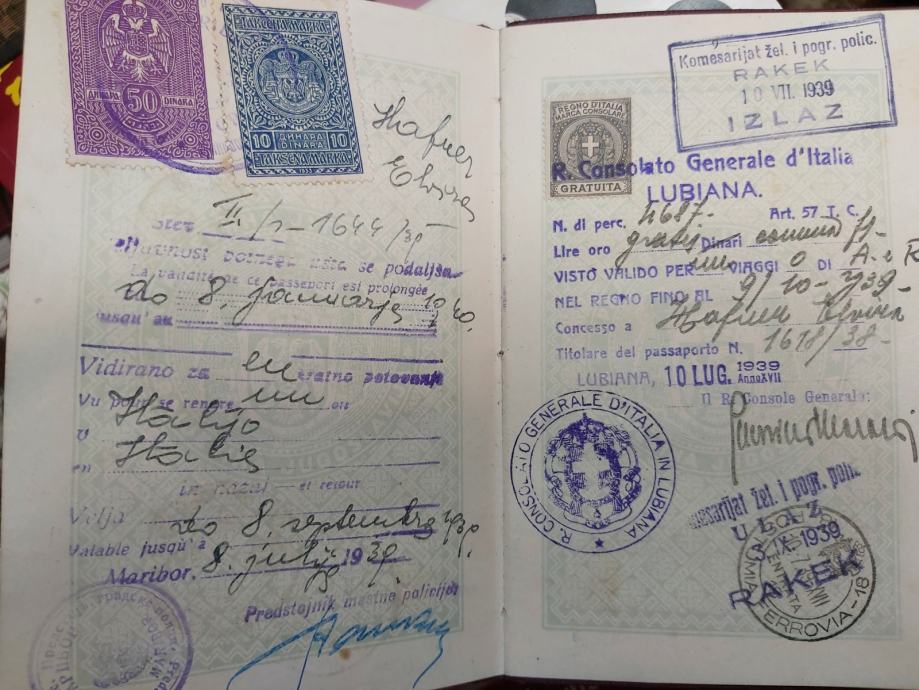 50
ДИНАРА DINARA
10 ДИНАРА DINARA 10
TAKSENA MARKA
Hafner
Elvira
Štev. II/1-1644/39
Veljavnost potnega lista se podaljša
La validité de ce passeport est prolongée
do 8. januarja 1940.
jusqu'au
Vidirano za en kratno potovanje
Vu pour se rendre un fois
v Italijo
en Italie
in nazaj - et retour
Velja do 8. septembra 1939.
Valable jusqu'à
Maribor, 8. julija 1939
Predstojnik mestne policije:
Komesarijat žel. i pogr. polic.
RAKEK
10 VII. 1939
IZLAZ
REGNO D'ITALIA
MARCA CONSOLARE
GRATUITA
R. Consolato Generale d'Italia
LUBIANA.
N. di perc. 4687- Art. 57 T. C.
Lire oro gratis Dinari
VISTO VALIDO PER un VIAGGIO DI A. e R
NEL REGNO FINO AL 9/10-1939-
Concesso a Hafner Elvira
Titolare del passaporto N. 1618/38-
LUBIANA, 10 LUG. 1939
Anno XVII
Il R. Console Generale:
R. CONSOLATO GENERALE D'ITALIA IN LUBIANA
Komesarijat žel. i pogr. polic.
ULAZ
3 IX. 1939
RAKEK
FERROVIA-18